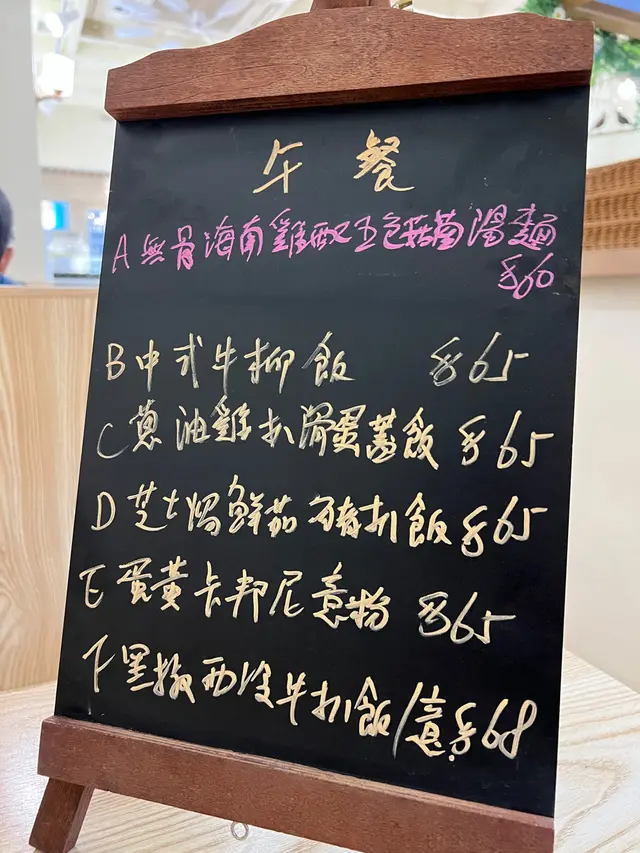 午餐
A 無骨海南雞配五色菇菌湯麵
$60
B 中式牛柳飯 $65
C 蔥油雞扒滑蛋蓋飯 $65
D 芝士焗鮮茄豬扒飯 $65
E 蛋黃卡邦尼意粉 $65
F 黑椒西冷牛扒飯/意 $68